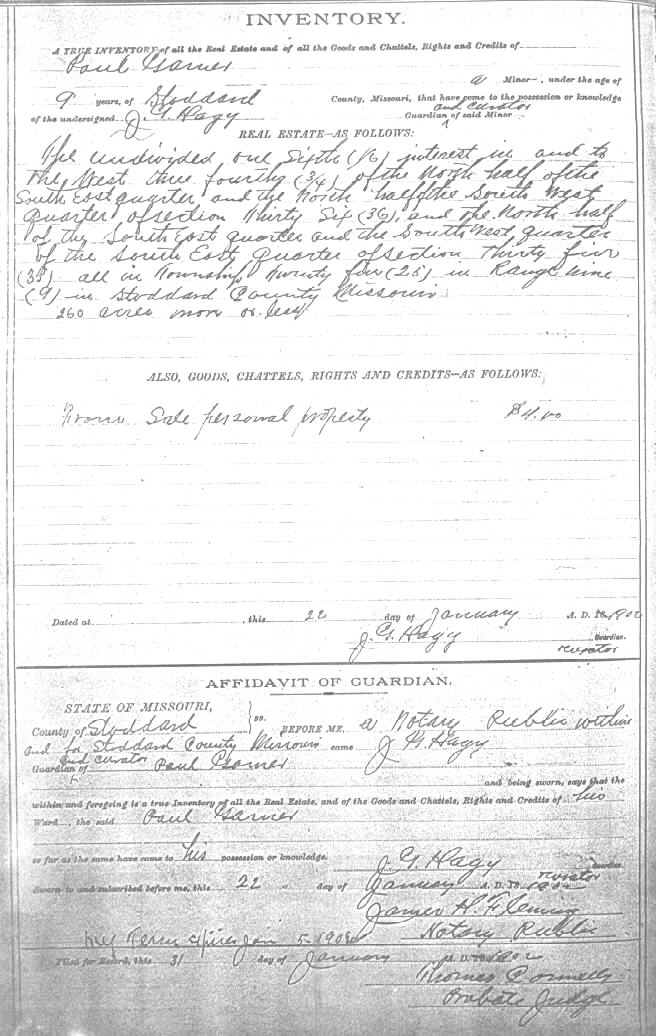 INVENTORY.
A TRUE INVENTORY of all the Real Estate and of all the Goods and Chattels, Rights and Credits of
Paul Garner a Minor, under the age of
9 years, of Stoddard County, Missouri, that have come to the possession or knowledge
of the undersigned J. G. Hagy Guardian and curator of said Minor
REAL ESTATE—AS FOLLOWS:
The undivided one sixth (1/6) interest in and to
the West three fourths (3/4) of the North half of the
South East quarter and the North half of the South West
quarter of section Thirty Six (36), and the North half
of the South East quarter and the South West quarter
of the South East Quarter of section Thirty five
(35) all in Township Twenty five (25) in Range nine
(9) in Stoddard County Missouri
260 acres more or less
ALSO, GOODS, CHATTELS, RIGHTS AND CREDITS—AS FOLLOWS:
From Sale personal property $4.00
Dated at , this 22 day of January A. D. 1902
J. G. Hagy Guardian.
curator
AFFIDAVIT OF GUARDIAN.
STATE OF MISSOURI,
County of Stoddard ss. BEFORE ME, a Notary Public within
and for Stoddard County Missouri came J G. Hagy
Guardian and curator of Paul Garner
and being sworn, says that the
within and foregoing is a true Inventory of all the Real Estate, and of the Goods and Chattels, Rights and Credits of his
Ward, the said Paul Garner
so far as the same have come to his possession or knowledge.
J. G. Hagy Guardian
curator
Sworn to and subscribed before me, this 22 day of January A. D. 1902
James H. Fleming
My Term expires Jan 5 Notary Public
Filed for Record, this 31 day of January A. D. 1902
Thomas Connelly
Probate Judge